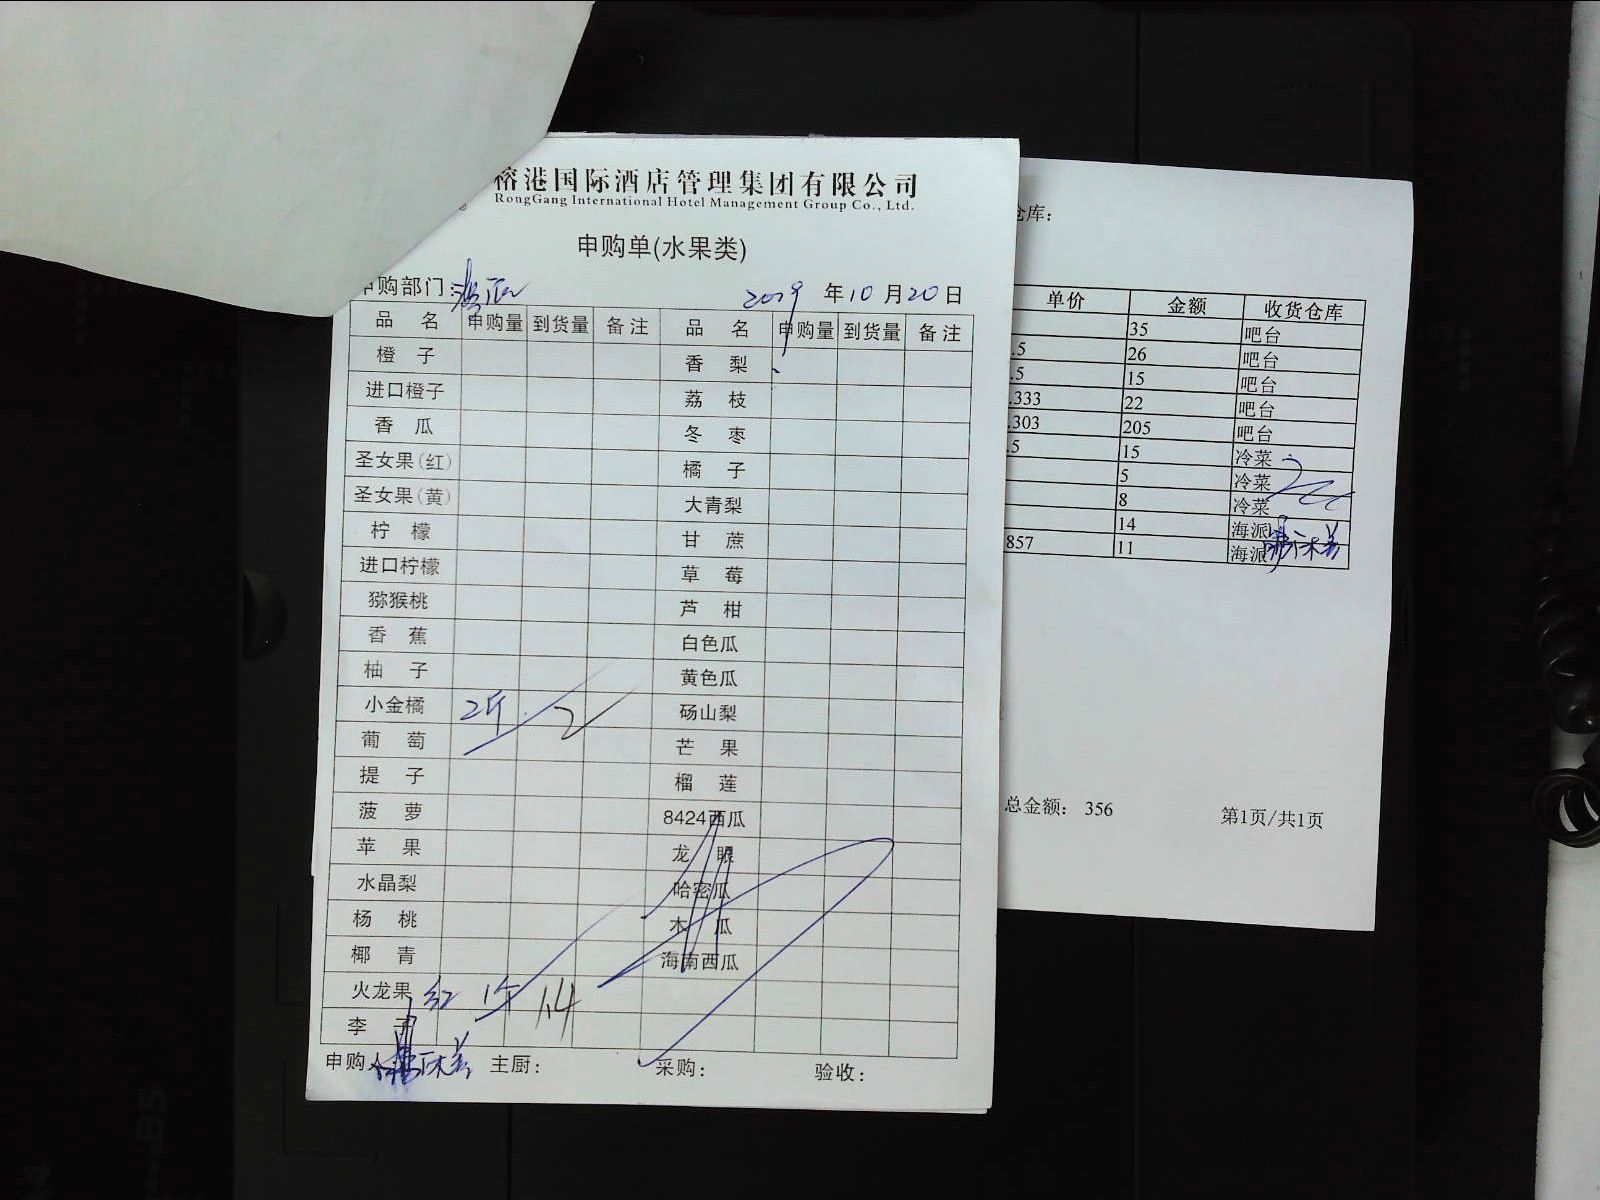 榕港国际酒店管理集团有限公司
RongGang International Hotel Management Group Co., Ltd.
申购单(水果类)
申购部门:海派 2019年10月20日
品名 申购量 到货量 备注 品名 申购量 到货量 备注
橙子 香梨
进口橙子 荔枝
香瓜 冬枣
圣女果(红) 橘子
圣女果(黄) 大青梨
柠檬 甘蔗
进口柠檬 草莓
猕猴桃 芦柑
香蕉 白色瓜
柚子 黄色瓜
小金橘 2斤 2 砀山梨
葡萄 芒果
提子 榴莲
菠萝 8424西瓜
苹果 龙眼
水晶梨 哈密瓜
杨桃 木瓜
椰青 海南西瓜
火龙果 红 1斤 1.4
李子
申购人 主厨: 采购: 验收:
仓库:
单价 金额 收货仓库
35 吧台
.5 26 吧台
.5 15 吧台
.333 22 吧台
.303 205 吧台
.5 15 冷菜
5 冷菜
8 冷菜
14 海派
857 11 海派
总金额: 356 第1页/共1页